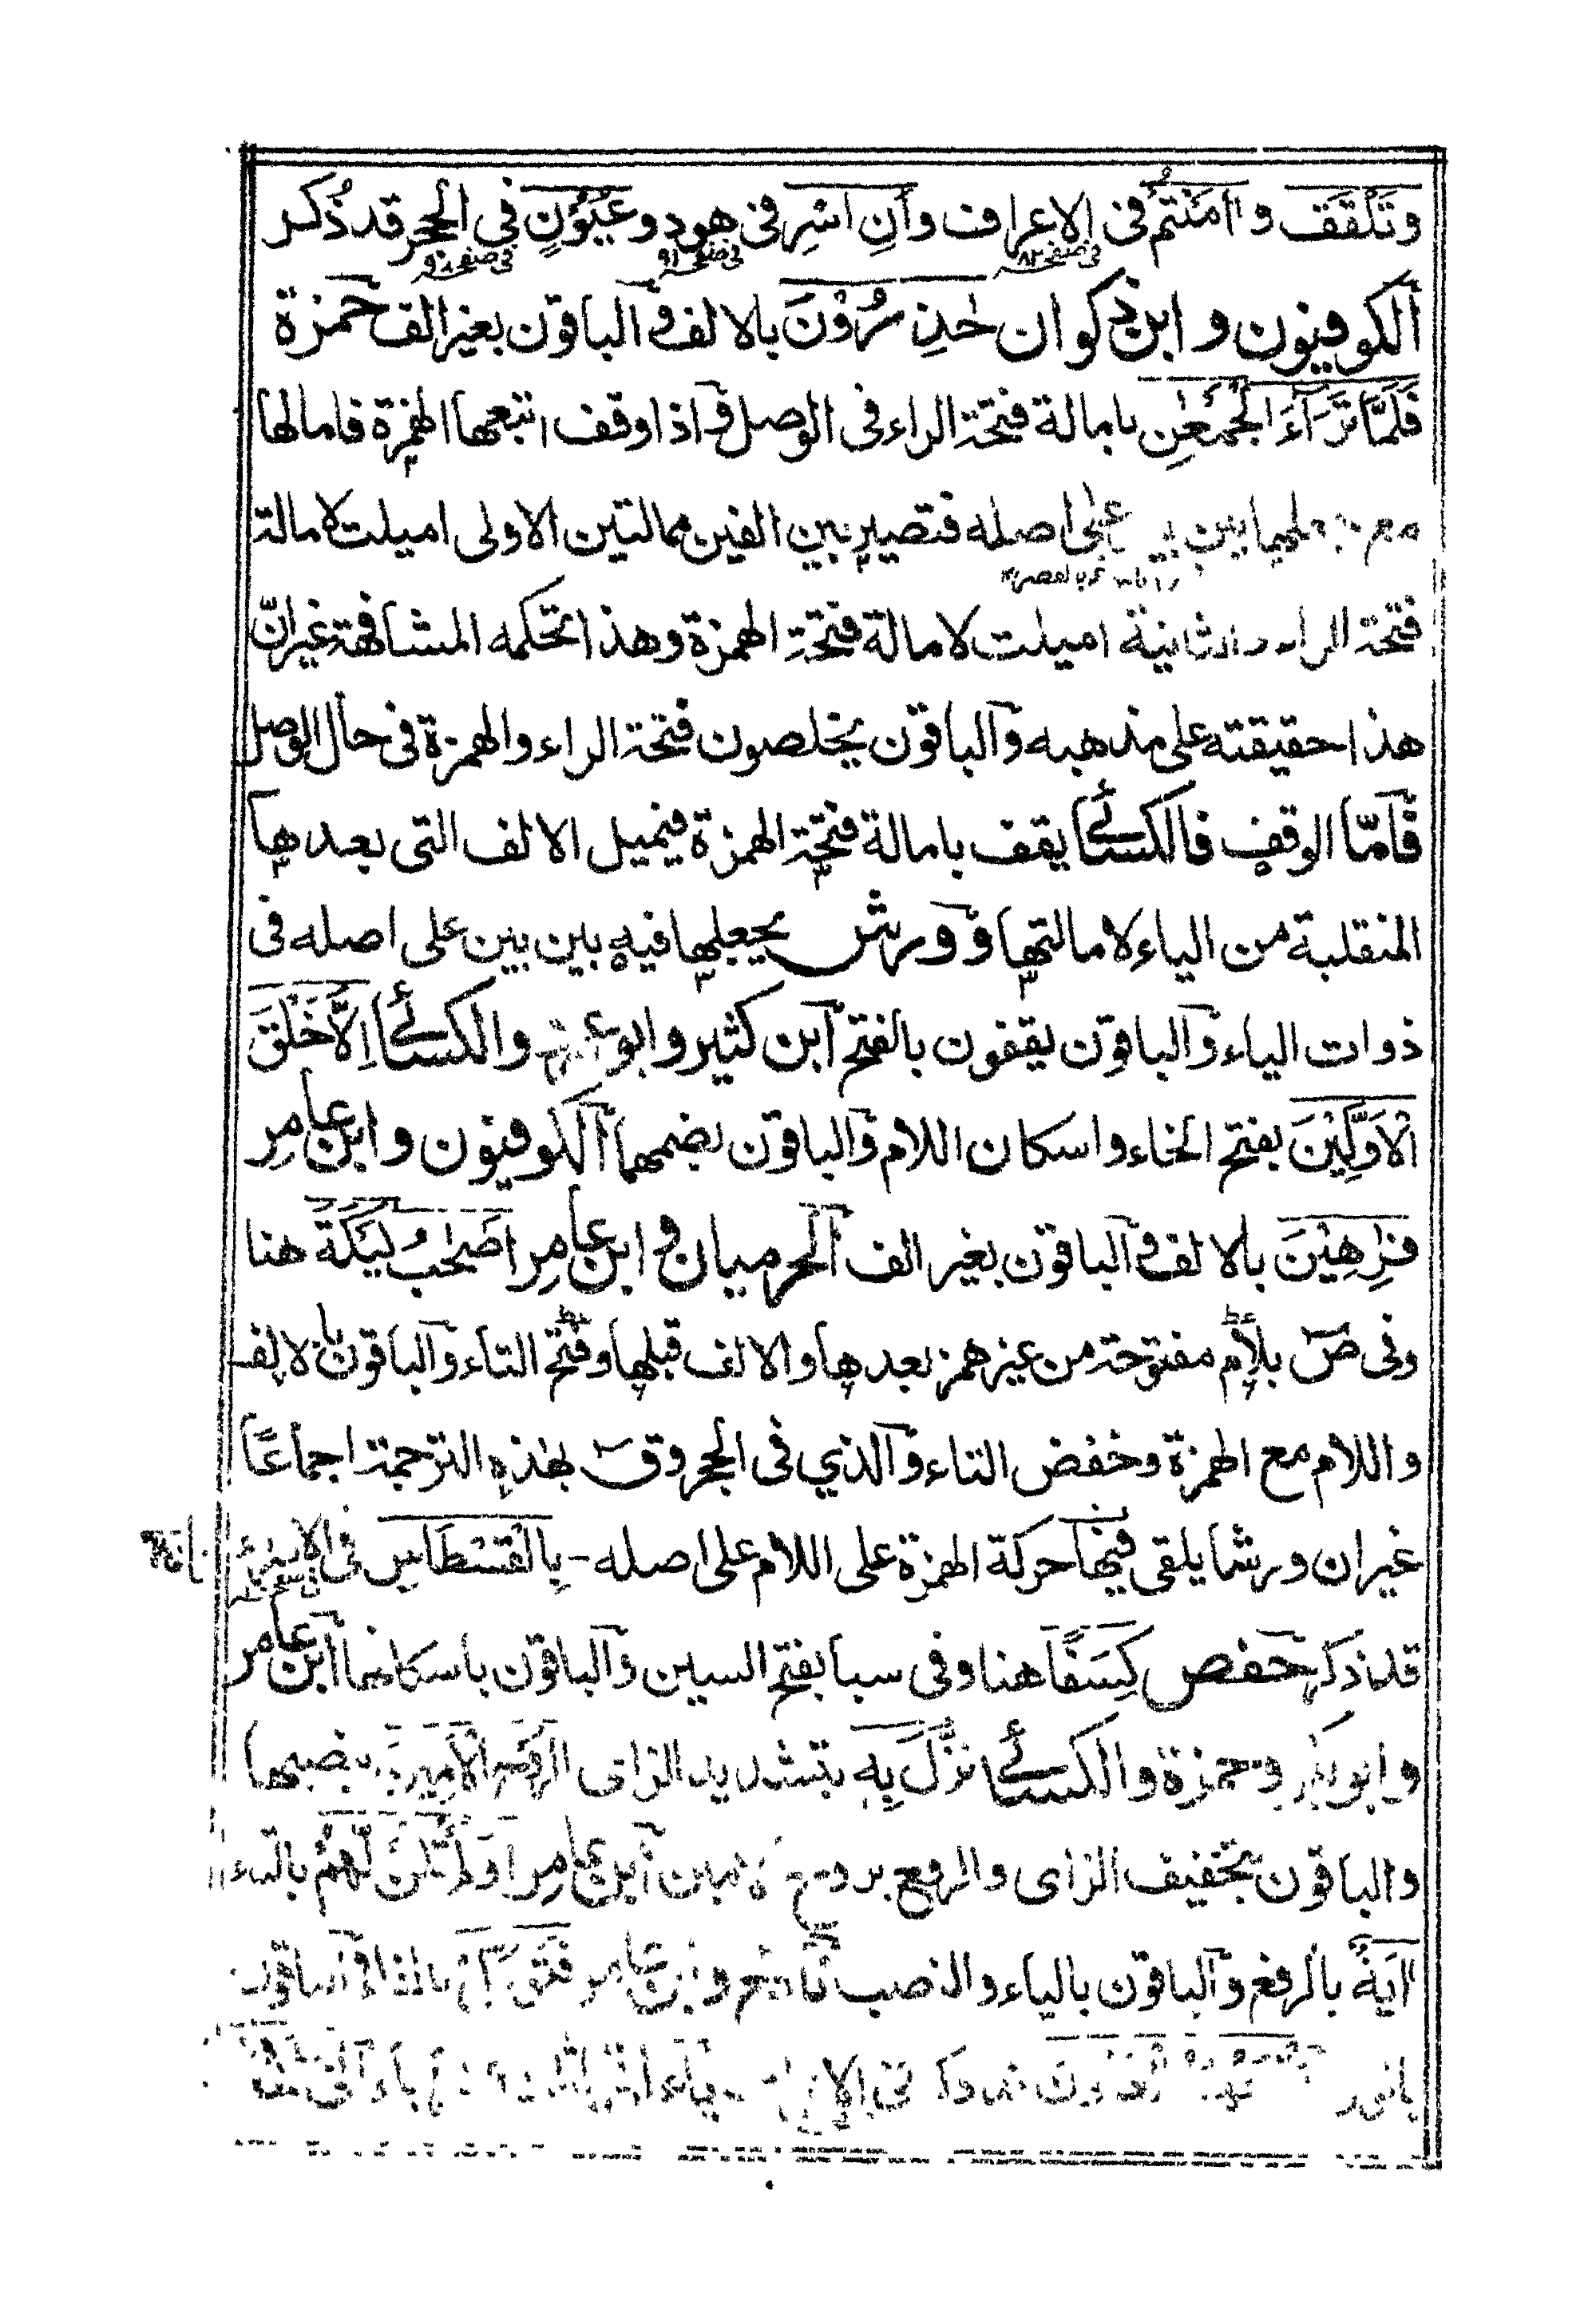 وتَلْقَفُ وءامَنْتُمْ فى الاعراف وأَنِ اسْرِ فى هود وعُيُوْنٍ فى الحجر قد ذُكر
فى صفحه ٨٢ فى صفحه ٩١ فى صفحه
الكوفيون وابن ذكوان حٰذِرُوْنَ بالالف والباقون بغير الف حمزة
فَلَمَّا تَرَآءَ الْجَمْعٰنِ بامالة فتحة الراء فى الوصل واذا وقف اتبعها الهمزة فامالها
مع جعلهما بين بين على اصله فتصير بين الفين ممالتين الاولى اميلت لامالة
فتحة الراء والثانية اميلت لامالة فتحة الهمزة وهذا تحكمه المشافهة غير انّ
هذا حقيقته على مذهبه والباقون يخلصون فتحة الراء والهمزة فى حال الوصل
فامّا الوقف فالكسائى يقف بامالة فتحة الهمزة فيميل الالف التى بعدها
المنقلبة من الياء لامالتها وورش يجعلها فيه بين بين على اصله فى
ذوات الياء والباقون يقفون بالفتح ابن كثير وابو عمرو والكسائى اِلَّا خَلْقُ
الْاَوَّلِيْنَ بفتح الخاء واسكان اللام والباقون بضمهما الكوفيون وابن عامر
فٰرِهِيْنَ بالالف والباقون بغير الف الحرميان وابن عامر اَصْحٰبُ لَيْكَةَ هنا
وفى صٓ بلام مفتوحة من غير همز بعدها والالف قبلها وفتح التاء والباقون بالالف
واللام مع الهمزة وخفض التاء والذي فى الحجر وقٓ بهذه الترجمة اجماعًا
غير ان ورشا يلقى فيها حركة الهمزة على اللام على اصله - بِالْقِسْطَاسِ فى الاسرٰى
قد ذكر حفص كِسَفًا هنا وفى سبا بفتح السين والباقون باسكانها ابن عامر
وابو بكر وحمزة والكسائى نَزَّلَ بِهِ بتشديد الزاى الرُّوْحَ الْاَمِيْنَ بنصبهما
والباقون بتخفيف الزاى والرفع ابن عامر اَوَلَمْ تَكُنْ لَّهُمْ بالتاء
اٰيَةٌ بالرفع والباقون بالياء والنصب نافع وابن عامر فَتَوَكَّلْ بالفاء والباقون
بالواو